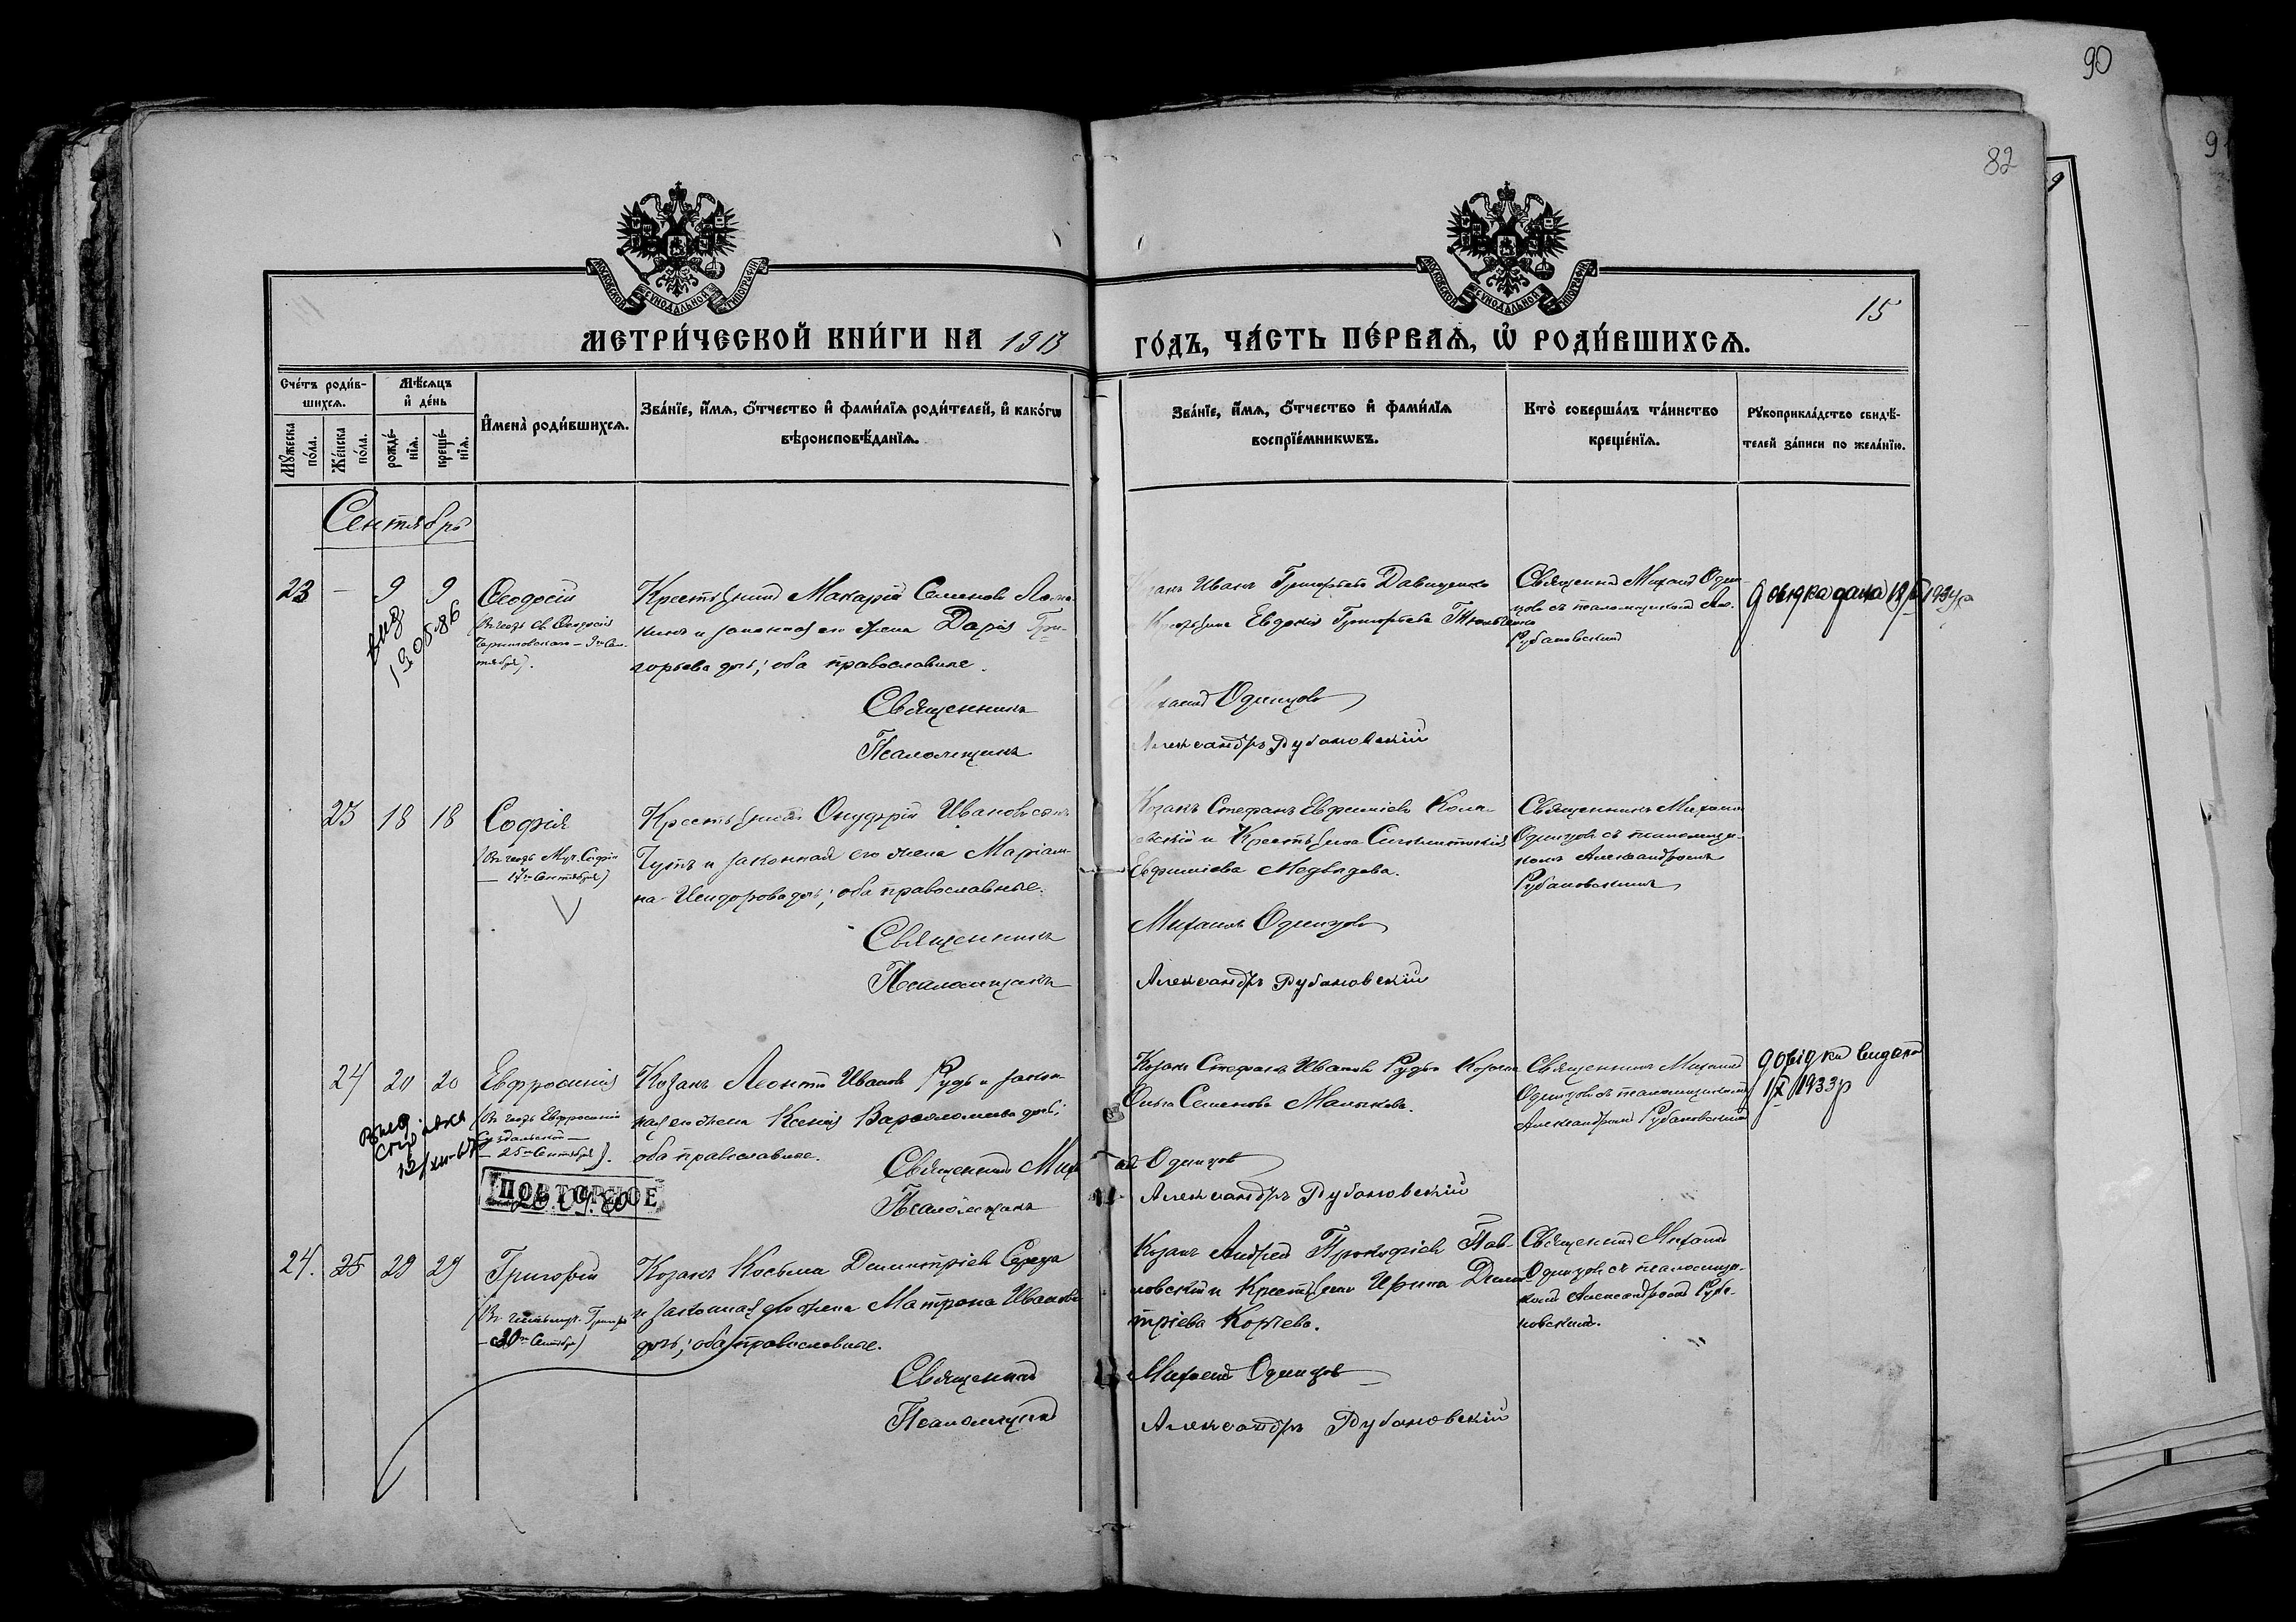 90
82
15
МОСКОВСКОЙ СУНОДАЛЬНОЙ ТИПОГРАФІИ
МОСКОВСКОЙ СУНОДАЛЬНОЙ ТИПОГРАФІИ
МЕТРИ́ЧЕСКОЙ КНИ́ГИ НА 1913
ГО́ДЪ, ЧА́СТЬ ПЕ́РВАѦ, Ѡ҆ РОДИ́ВШИХСѦ.
Сче́тъ роди́в-
шихсѧ.
Мꙋ́жеска по́ла.
Же́нска по́ла.
Мѣ́сѧцъ
и҆ де́нь
рожде́-
нїѧ.
креще́-
нїѧ.
И҆мена̀ роди́вшихсѧ.
Зва́нїе, и҆́мѧ, ѻ҆́тчество и҆ фами́лїѧ роди́телей, и҆ како́гѡ
вѣроисповѣ́данїѧ.
Зва́нїе, и҆́мѧ, ѻ҆́тчество и҆ фами́лїѧ
воспрїе́мникѡвъ.
Кто̀ соверша́лъ та́инство
креще́нїѧ.
Рꙋкоприкла́дство свидѣ́-
телей за́писи по жела́нїю.
Сентябрь
23 — 9 9 Ѳеодосій
(Въ честь Св. Ѳеодосія
Черниговскаго — 9го Сен-
тября).
19.05.86
Крестьянинъ Макарій Семеновъ
и законная его жена Дарія Гри-
горьева дочь; оба православные.
Священникъ
Псаломщикъ
Иванъ Григорьевъ Давиденко
Евдокія Григорьева
Михаилъ Одинцовъ
Александръ Рубановскій
Священникъ Михаилъ Один-
цовъ съ псаломщикомъ Ал.
Рубановскимъ
23 18 18 Софія
(Въ честь Муч. Софіи
— 17го Сентября)
Крестьянинъ Онуфрій Ивановъ сынъ
Чутъ и законная его жена Маріам-
на Исидорова дочь; оба православные.
Священникъ
Псаломщикъ
Козакъ Стефанъ Евфиміевъ
и Крестьянка Синклитикія
Евфиміева Медведева.
Михаилъ Одинцовъ
Александръ Рубановскій
Священникъ Михаилъ
Одинцовъ съ псаломщи-
комъ Александромъ
Рубановскимъ
24 20 20 Евфросинія
(Въ честь Евфросиніи
Суздальской —
— 25го Сентября).
ПОВТОРНОЕ
Козакъ Леонтій Ивановъ Рудь и закон-
ная его жена Ксенія Варѳоломеева дочь;
оба православные.
Священникъ Миха
Псаломщикъ
Козакъ Стефанъ Ивановъ Рудь и Козачка
Ольга Семенова
илъ Одинцовъ
Александръ Рубановскій
Священникъ Михаилъ
Одинцовъ съ псаломщикомъ
Александромъ Рубановскимъ
довідка видана
1/X 1933р
24. 25 29 29 Григорій
— 30го Сентября)
Козакъ Косьма Димитріевъ Середа
и законная его жена Матрона Иванова
дочь; оба православные.
Священникъ
Псаломщикъ
Козакъ Андрей Прокофіевъ Пав-
ловскій и Крестьянка Ирина Дими-
тріева Корчева.
Михаилъ Одинцовъ
Александръ Рубановскій
Священникъ Михаилъ
Одинцовъ съ псаломщи-
комъ Александромъ Руба-
новскимъ.